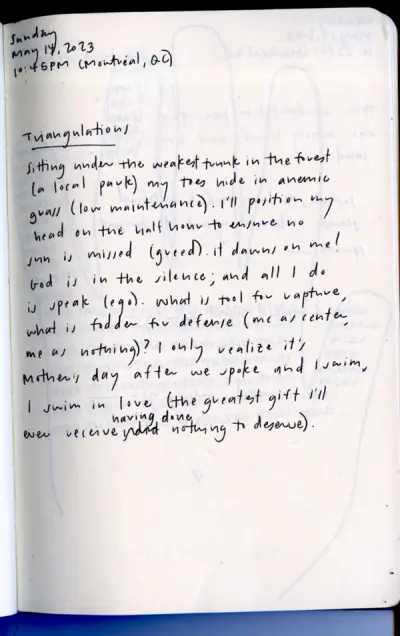 Sunday
May 14, 2023
10:45PM (Montréal, QC)
Triangulations
Sitting under the weakest trunk in the forest
(a local park) my toes hide in anemic
grass (low maintenance). I'll position my
head on the half hour to ensure no
sun is missed (greed). it dawns on me!
God is in the silence; and all I do
is speak (ego). What is tool for rapture,
what is fodder for defense (me as center,
me as nothing)? I only realize it's
Mother's day after we spoke and I swim,
I swim in love (the greatest gift I'll
having done
ever receive nothing to deserve).